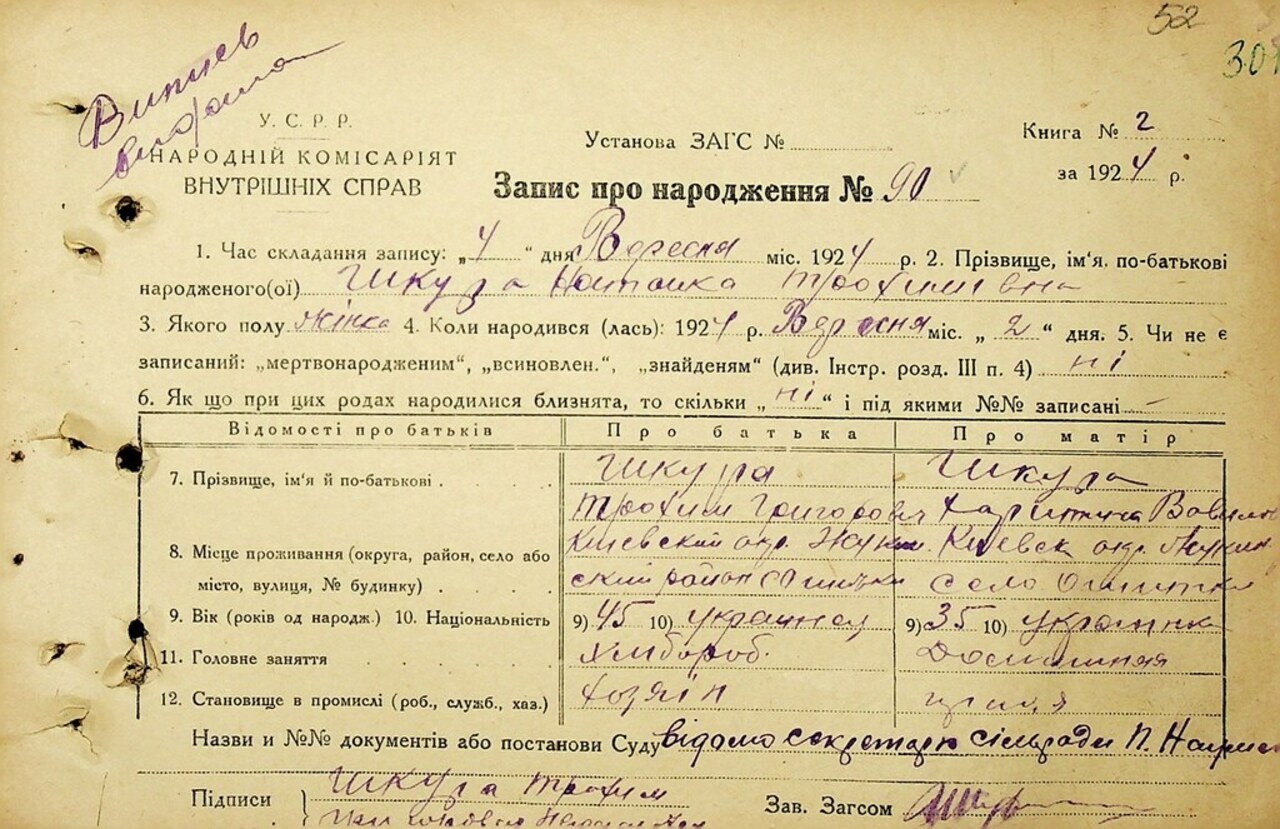 52
301
Витяг
У. С. Р. Р.
НАРОДНІЙ КОМІСАРІЯТ
ВНУТРІШНІХ СПРАВ
Установа ЗАГС №
Книга № 2
за 1924 р.
Запис про народження № 90
1. Час складання запису: „4“ дня Вересня міс. 1924 р. 2. Прізвище, ім'я, по-батькові
народженого(ої) Шкура Наталка Трохимівна
3. Якого полу жінка 4. Коли народився (лась): 1924 р. Вересня міс. „2“ дня. 5. Чи не є
записаний: „мертвонародженим“, „всиновлен.“, „знайденям“ (див. Інстр. розд. III п. 4) ні
6. Як що при цих родах народилися близнята, то скільки „ні“ і під якими №№ записані —
Відомості про батьків Про батька Про матір
7. Прізвище, ім'я й по-батькові Шкура Шкура
Трохим Григорович Харитина Вавилов
8. Місце проживання (округа, район, село або Киевский окр. Жукин Киевск окр. Жукин
місто, вулиця, № будинку) ский район село
9. Вік (років од народж.) 10. Національність 9) 45 10) украинец 9) 35 10) украинка
11. Головне заняття хлібороб. Домашняя
12. Становище в промислі (роб., служб., хаз.) хозяін
Назви и №№ документів або постанови Суду відомо секретарю сільради П.
Підписи Шкура Трохим
Зав. Загсом